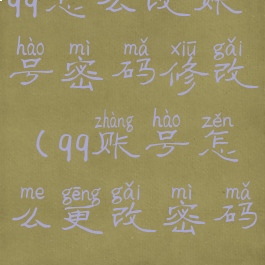 qq怎么改账
hào mì mǎ xiū gǎi
号密码修改
zhàng hào zěn
(qq账号怎
me gēng gǎi mì mǎ
么更改密码